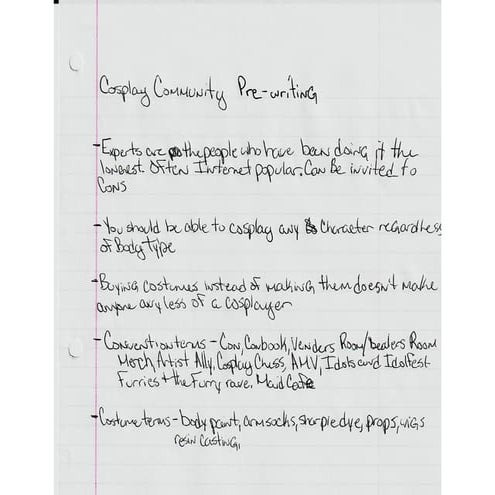 Cosplay Community Pre-writing
- Experts are the people who have been doing it the
longest. Often Internet popular. Can Be invited to
Cons
- You should be able to cosplay any character regardless
of Body type
- Buying costumes instead of making them doesn't make
anyone any less of a cosplayer
- Convention terms - Con, Conbook, Venders Room/Dealers Room
Merch, Artist Ally, Cosplay Chess, AMV, Idols and Idolfest
Furries + the Furry rave, Maid Cafe
- Costume terms - body paint, armsocks, sharpie dye, props, wigs
resin casting,